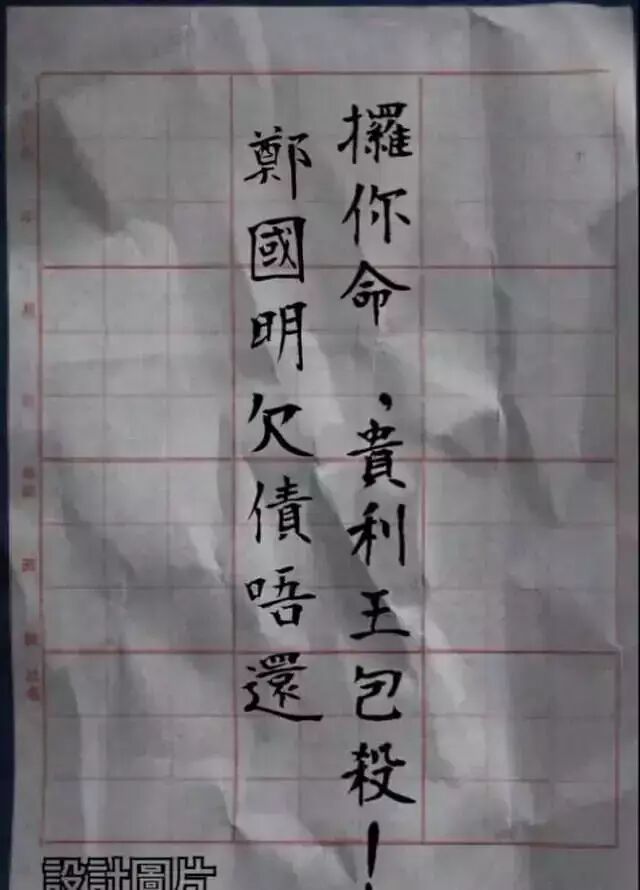 攞你命，貴利王包殺！
鄭國明欠債唔還
設計圖片